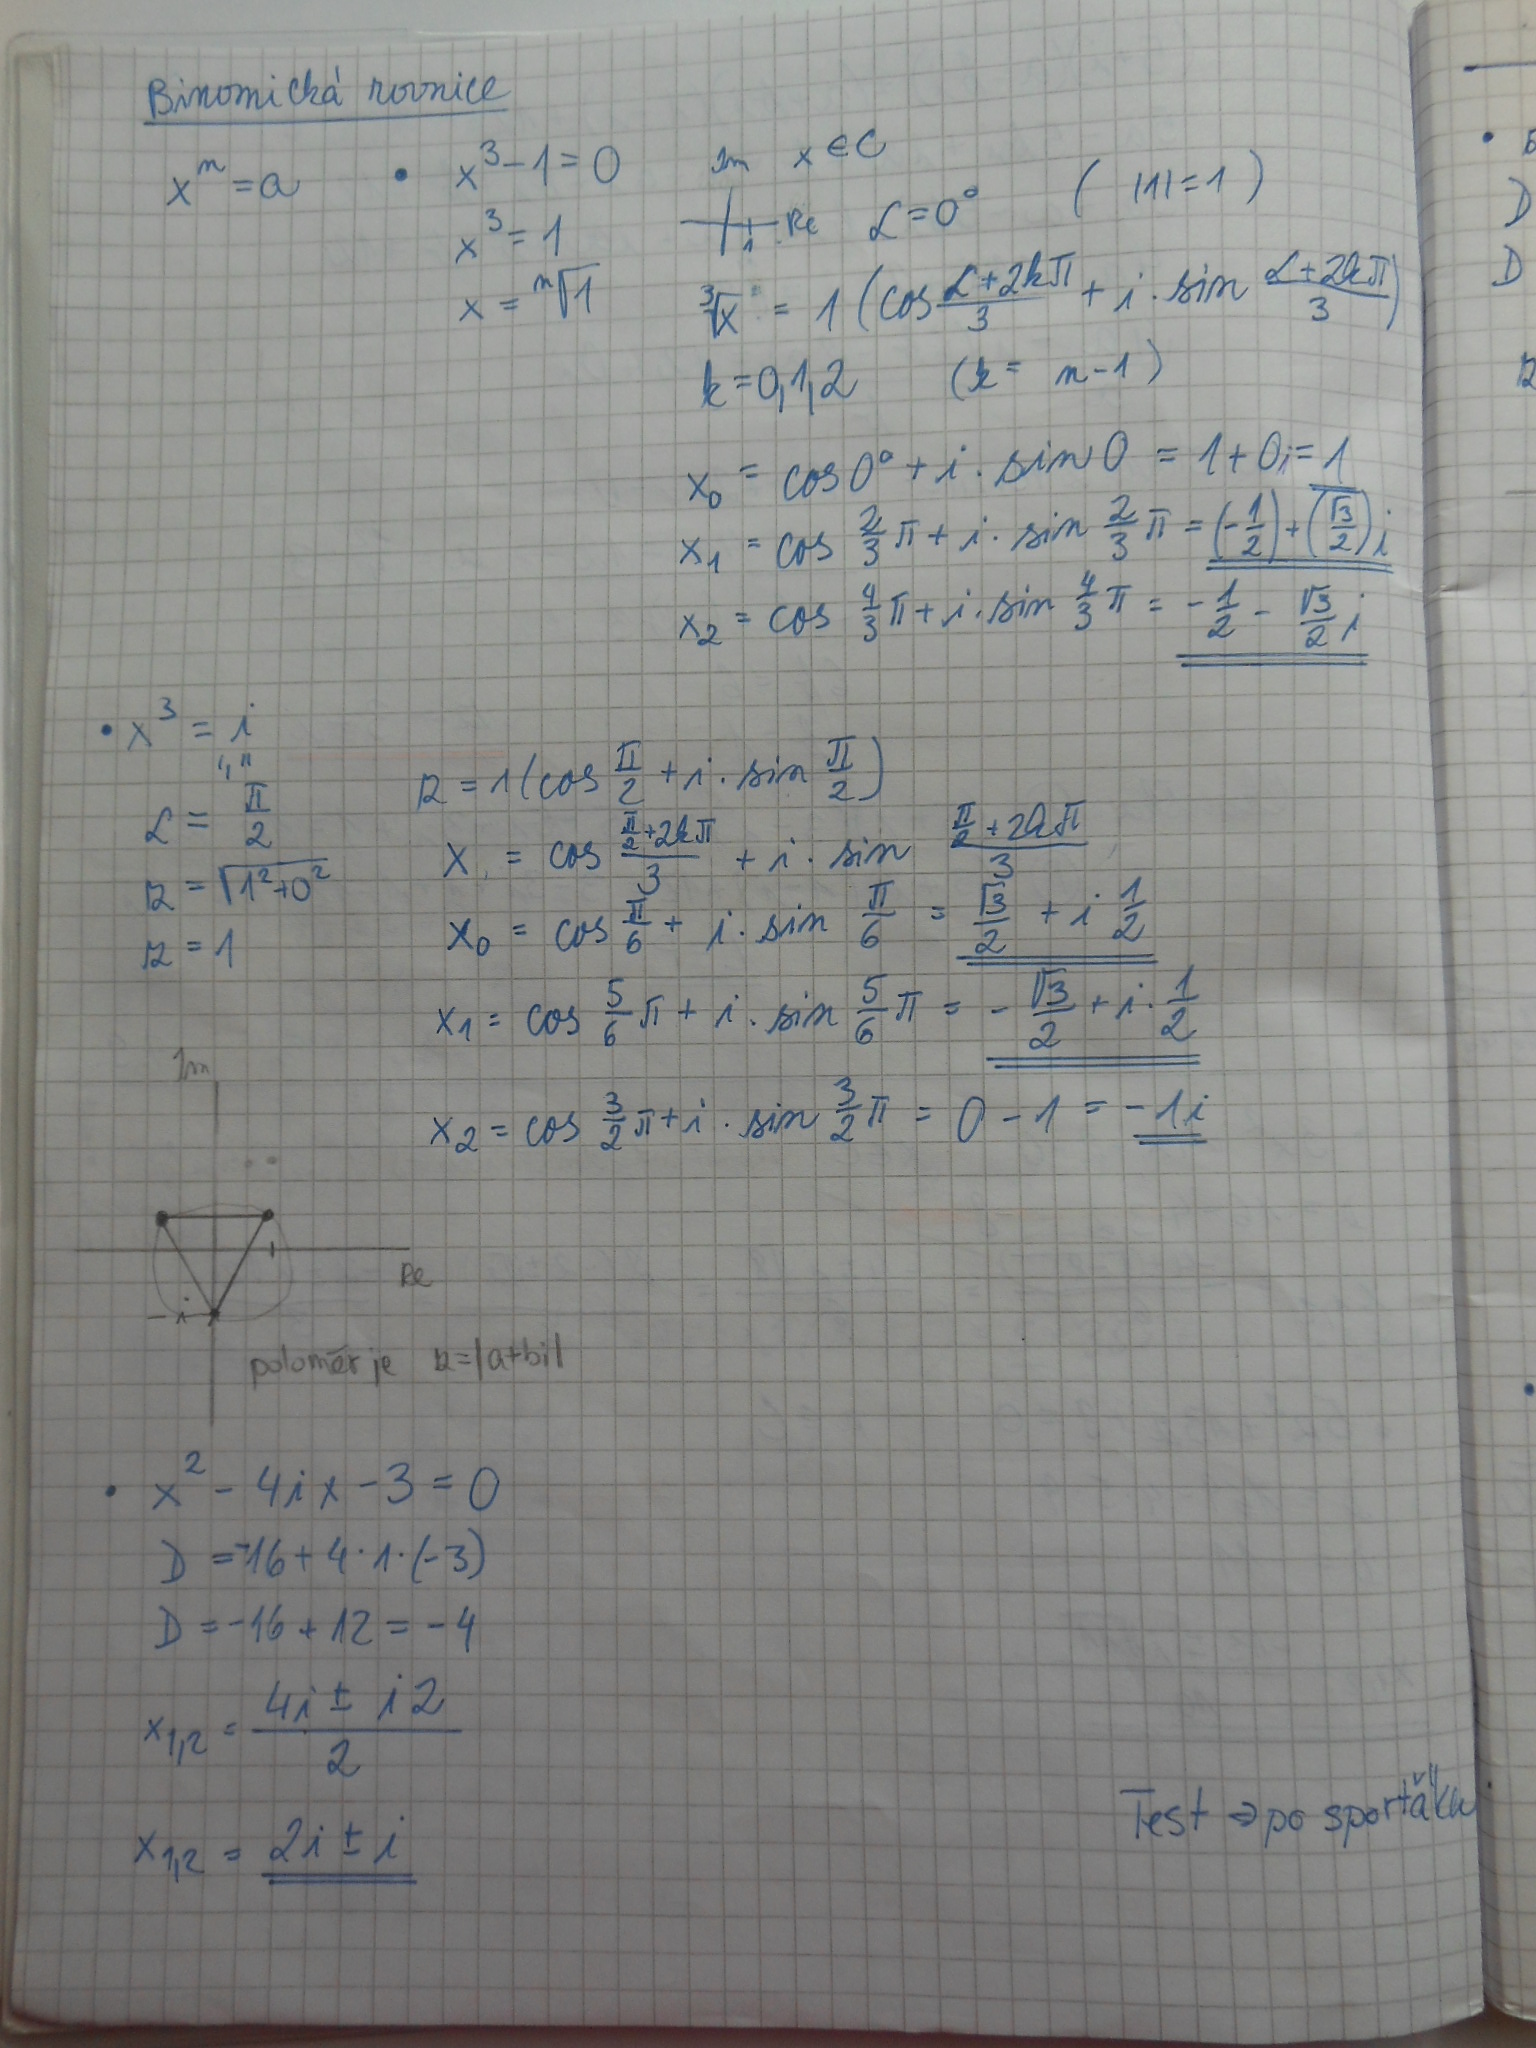 Binomická rovnice
xⁿ = a
• x³ - 1 = 0
x³ = 1
x = ⁿ√1
Im x ∈ C
Re α = 0° ( |1| = 1 )
1
³√x = 1 (cos (α + 2kπ)/3 + i · sin (α + 2kπ)/3)
k = 0,1,2 (k = n - 1)
x₀ = cos 0° + i · sin 0 = 1 + 0i = 1
x₁ = cos 2/3 π + i · sin 2/3 π = (-1/2) + (√3/2) i
x₂ = cos 4/3 π + i · sin 4/3 π = -1/2 - √3/2 i
• x³ = i
"1"
α = π/2
r = √1² + 0²
r = 1
r = 1 (cos π/2 + i · sin π/2)
x = cos (π/2 + 2kπ)/3 + i · sin (π/2 + 2kπ)/3
x₀ = cos π/6 + i · sin π/6 = √3/2 + i 1/2
x₁ = cos 5/6 π + i · sin 5/6 π = - √3/2 + i · 1/2
x₂ = cos 3/2 π + i · sin 3/2 π = 0 - 1 = -1i
Im
1
Re
-i
poloměr je r = |a+bi|
• x² - 4ix - 3 = 0
D = -16 + 4 · 1 · (-3)
D = -16 + 12 = -4
x₁,₂ = (4i ± i2)/2
x₁,₂ = 2i ± i
Test ⇒ po sportǎku